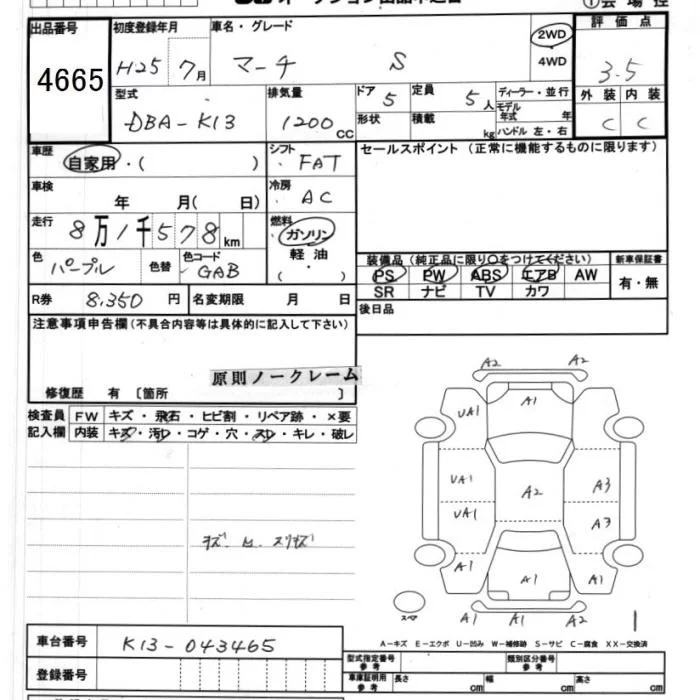 ①会場控
出品番号 初度登録年月 車名・グレード 2WD 評価点
4665 H25 7月 マーチ S 4WD 3.5
型式 排気量 ドア 5 定員 5人 ディーラー・並行 外装 内装
DBA-K13 1200cc 形状 積載 kg モデル年式 年 ハンドル 左・右 C C
車歴 自家用・( ) シフト FAT セールスポイント(正常に機能するものに限ります)
車検 年 月( 日) 冷房 AC
走行 8万1千578km 燃料 ガソリン 軽油 ( ・ )
装備品(純正品に限り○をつけてください) 新車保証書
色 パープル 色替 色コード GAB PS PW ABS エアB AW 有・無
SR ナビ TV カワ
R券 8,350円 名変期限 月 日 後日品
注意事項申告欄(不具合内容等は具体的に記入して下さい)
原則ノークレーム
修復歴 有 〔箇所 〕
検査員 FW キズ・飛石・ヒビ割・リペア跡・×要
記入欄 内装 キズ・汚レ・コゲ・穴・スレ・キレ・破レ
A2 A2
UA1 A1
UA1 A2 A3
UA1 A3
A1 A1 A1
スペア A1 A1 A1
A-キズ E-エクボ U-凹み W-補修跡 S-サビ C-腐食 XX-交換済
車台番号 K13-043465
登録番号 型式指定番号 参考 類別区分番号 参考
車庫証明用 参考 長さ cm 幅 cm 高さ cm